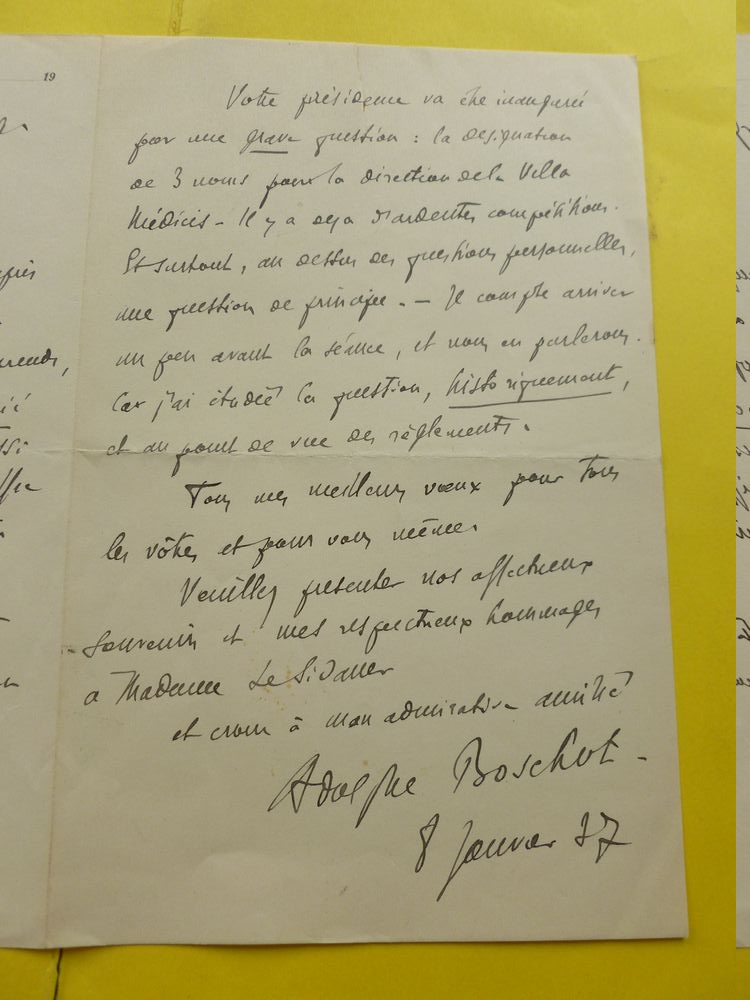 19
Votre présidence va être inaugurée
par une grave question : la désignation
de 3 noms pour la direction de la Villa
Médicis - Il y a déjà d'ardentes compétitions.
Et surtout, au dessus des questions personnelles,
une question de principe. - Je compte arriver
un peu avant la séance, et nous en parlerons.
Car j'ai étudié la question, historiquement,
et au point de vue des règlements.
Tous mes meilleurs vœux pour tous
les vôtres et pour vous même.
Veuillez présenter nos affectueux
souvenirs et mes respectueux hommages
à Madame Le Sidaner
et croire à mon admirative amitié
Adolphe Boschot -
8 janvier 37